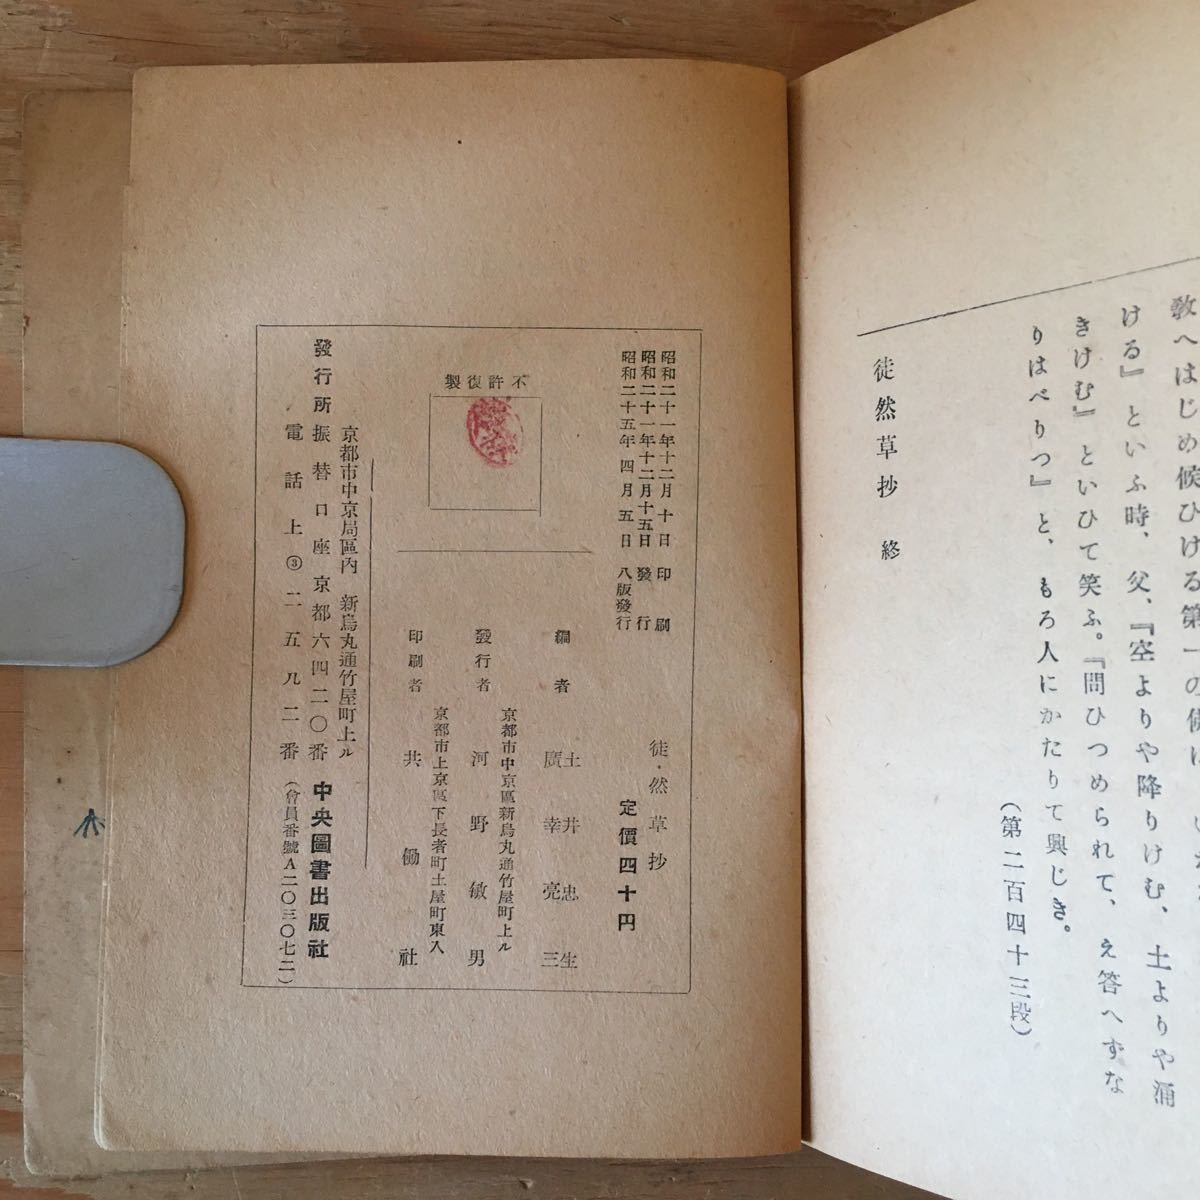 教へはじめ候ひける第一の佛は、
ける』といふ時、父、『空よりや降りけむ、土よりや涌
きけむ』といひて笑ふ。『問ひつめられて、え答へずな
りはべりつ』と、もろ人にかたりて興じき。
（第二百四十三段）
徒然草抄　終
昭和二十一年十二月十日　印刷
昭和二十一年十二月十五日　發行
昭和二十五年四月五日　八版發行
徒・然草抄
定價四十円
不許復製
編者　土井忠生
廣幸亮三
京都市中京區新烏丸通竹屋町上ル
發行者　河野敏男
京都市上京區下長者町土屋町東入
印刷者　共働社
京都市中京局區內　新烏丸通竹屋町上ル
發行所　中央圖書出版社
振替口座京都六四二〇番
電話上③二五九二番
（會員番號A二〇三〇七二）